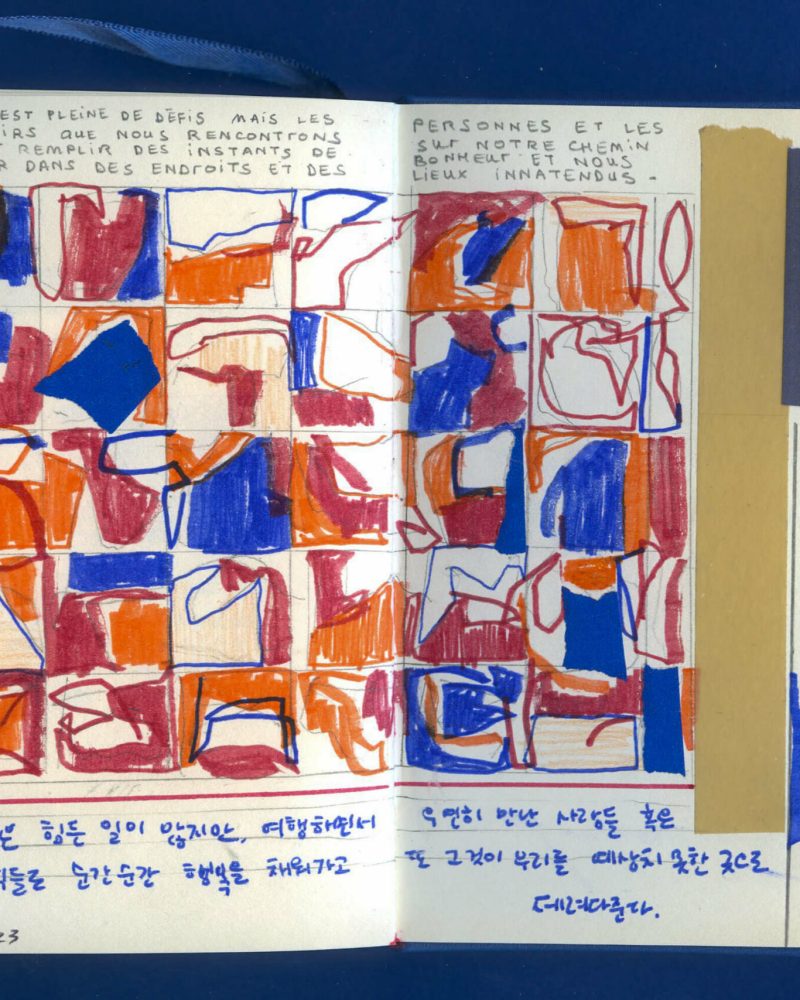 EST PLEINE DE DÉFIS MAIS LES PERSONNES ET LES
IRS QUE NOUS RENCONTRONS SUR NOTRE CHEMIN
REMPLIR DES INSTANTS DE BONHEUR ET NOUS
R DANS DES ENDROITS ET DES LIEUX INNATENDUS.
은 힘든 일이 많지만, 여행하면서 우연히 만난 사람들 혹은
들로 순간순간 행복을 채워가고 또 그것이 우리를 예상치 못한 곳으로
데려다준다.
23